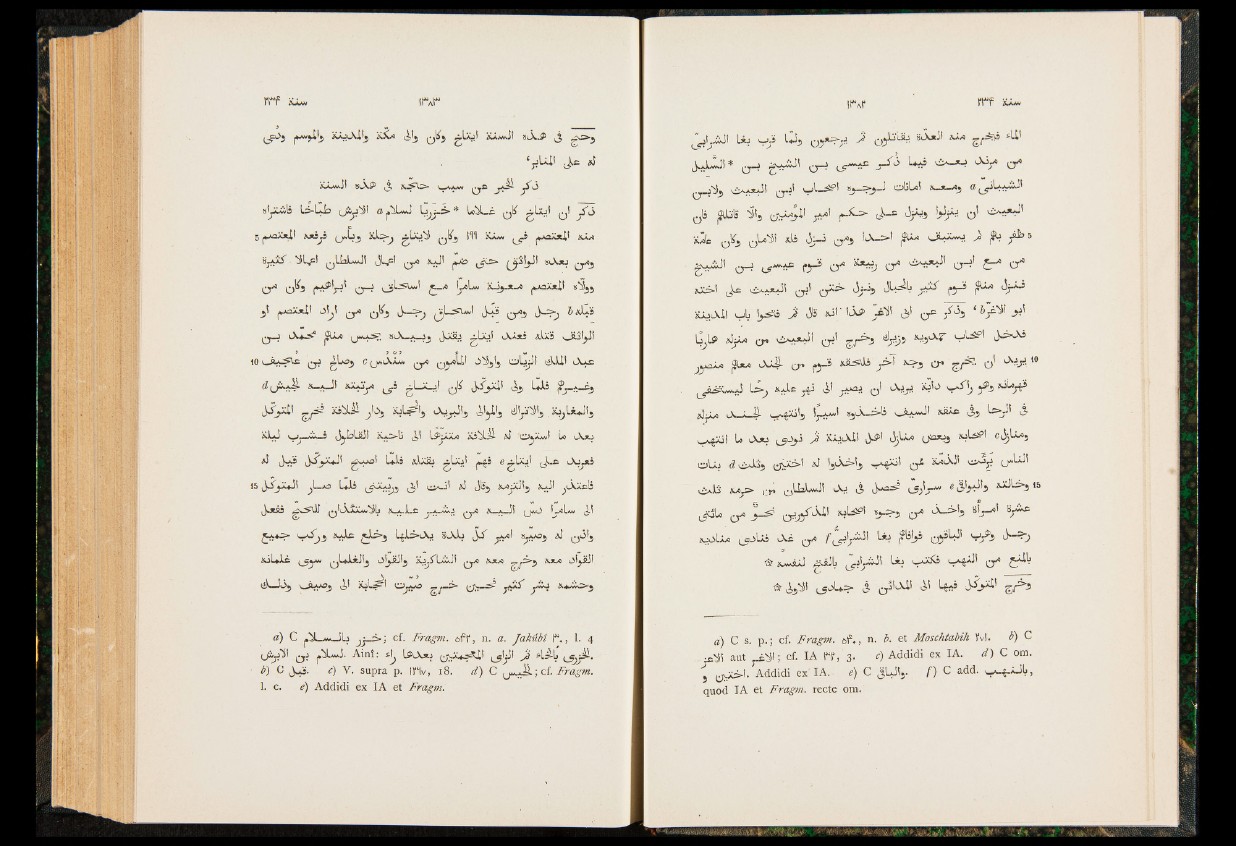 سنة ٢٣٤ ١٣٨٢
الماء فتخرج منه العدّة يقاتلون ثم يرجعون ولمّا قرب بغا الشرابىّ
من مرند بعث فيما ذُكر عيسى بن الشيخ بن *السَّليل
الشيبانىّ a ومعه امانات لوجوه اصحاب ابن البعيث ولابن
البعيث ان ينزلوا وينزل على حكم امير المؤمنين والّا قاتلهم فان
5 ظفر بهم لم يستبق منهم احدا ومن نزل فله الامان وكان عامّة
من مع ابن البعيث من ربيعة من قوم عيسى بن الشيخ
فنزل منهم قوم كثير بالحبال ونزل ختن ابن البعيث على اخته
ابو الاغرّ b، وذُكر عن ابى الاغرّ هذا انه قال ثم فتحوا باب المدينة
فدخل اصحاب حمدويه وزيرك وخرج ابن البعيث من منزله هاربًا
10 يريد ان يخرج من وجه آخر فلحقه قوم من الجند معهم منصور
قهرمانه وهو راكب دابّة يريد ان يصير الى نهر عليه رحًا ليستخفى
فى الرحا وفى عنقه السيف فاخذوه اسيرًا وانتهب الجند منزله
ومنازل c اصحابه وبعض منازل اهل المدينة ثم نودى بعد ما انتهب
الناس بَرِئَت الذمّة ممن انتهب واخذوا له اختين وثلث d بنات
15 وخالته والبواقى e سرارىّ فحصل فى يد السلطان من حرمه ثلث
عشرة امرأة واخذ من وجوه اصحابه المذكورين نحوٌ من مائتى
رجل وهرب الباقون فوافاهم بغا الشرابىّ f من غد فنادى مناديه
بالمنع من النهب فكتب بغا الشرابىّ بالفتح لنفسه ۞
وخرج المتوكّل فيها الى المدائن فى جمادى الاولى ۞
a) C s. p.; cf. Fragm. ٥٤٠, n. b. et Moschtabih ٢٧١. b) C
الاعر aut الاغبر; cf. IA ٣٢, 3. c) Addidi ex IA. d) C om.
اختين و. Addidi ex IA. e) C والباقى. f) C add. بالنهب,
quod IA et Fragm. recte om.
١٣٨٣ سنة ٢٣٤
وحجّ فى هذه السنة ايتاخ وكان والى مكّة والمدينة والموسم ودُعى
له على المنابر،
ذكر الخبر عن سبب حجّه فى هذه السنة
ذُكر ان ايتاخ كان غلاما *خَزَريًّا لسلام a الابرش طبّاخًا فاشتراه
5 منه المعتصم فى سنة ١٩٩ وكان لايتاخ رجلة وبأس فرفعه المعتصم
ومن بعده الواثق حتى ضمّ اليه من اعمال السلطان اعمالا كثيرة
وولّاه المعتصم معونة سامرّا مع اسحاق بن ابراهيم وكان من
قِبَله b رجل ومن قِبَل اسحاق رجل وكان من اراد المعتصم او
الواثق قتله فعند ايتاخ يقتل وبيده يحبس منهم محمّد بن
10 عبد الملك الزيّات واولاد المأمون من سُنْدُس c وصالح بن عُجَيف
وغيرهم فلمّا ولى المتوكّل كان ايتاخ فى مرتبته اليه الجيش d
والمغاربة والاتراك والموالى والبريد والحجابة ودار الخلافة فخرج المتوكّل
بعد ما استوت له الخلافة متنزّهًا الى ناحية القاطول فشرب ليلة
فعربد على ايتاخ e فهمّ ايتاخ بقتله فلمّا اصبح المتوكّل قيل له
15 فاعتذر اليه والتزمه وقال له انت ابى وربّيتنى فلمّا صار المتوكّل
الى سامرّا دسّ اليه من يشير عليه بالاستئذان للحجّ ففعل
واذن له وصيّره امير كلّ بلدة يدخلها وخلع عليه وركب جميع
القوّاد معه وخرج معه من الشاكريّة والقوّاد والغلمان سوى غلمانه
وحشمه بشر كثير فحين خرج صُيّرت الحجابة الى وصيف وذلك
a) C خزر بالسلام; cf. Fragm. ٥٤٢, n. a. Jakûbî ٣٠, l. 4
لسلام بن الابرش. Ainî: الخزرى بالخاء ثم الزاى المعجمتين بعدها راء.
b) C قيل. c) V. supra p. ١٣٦٧, 18. d) C الخيس; cf. Fragm.
l. c. e) Addidi ex IA et Fragm.